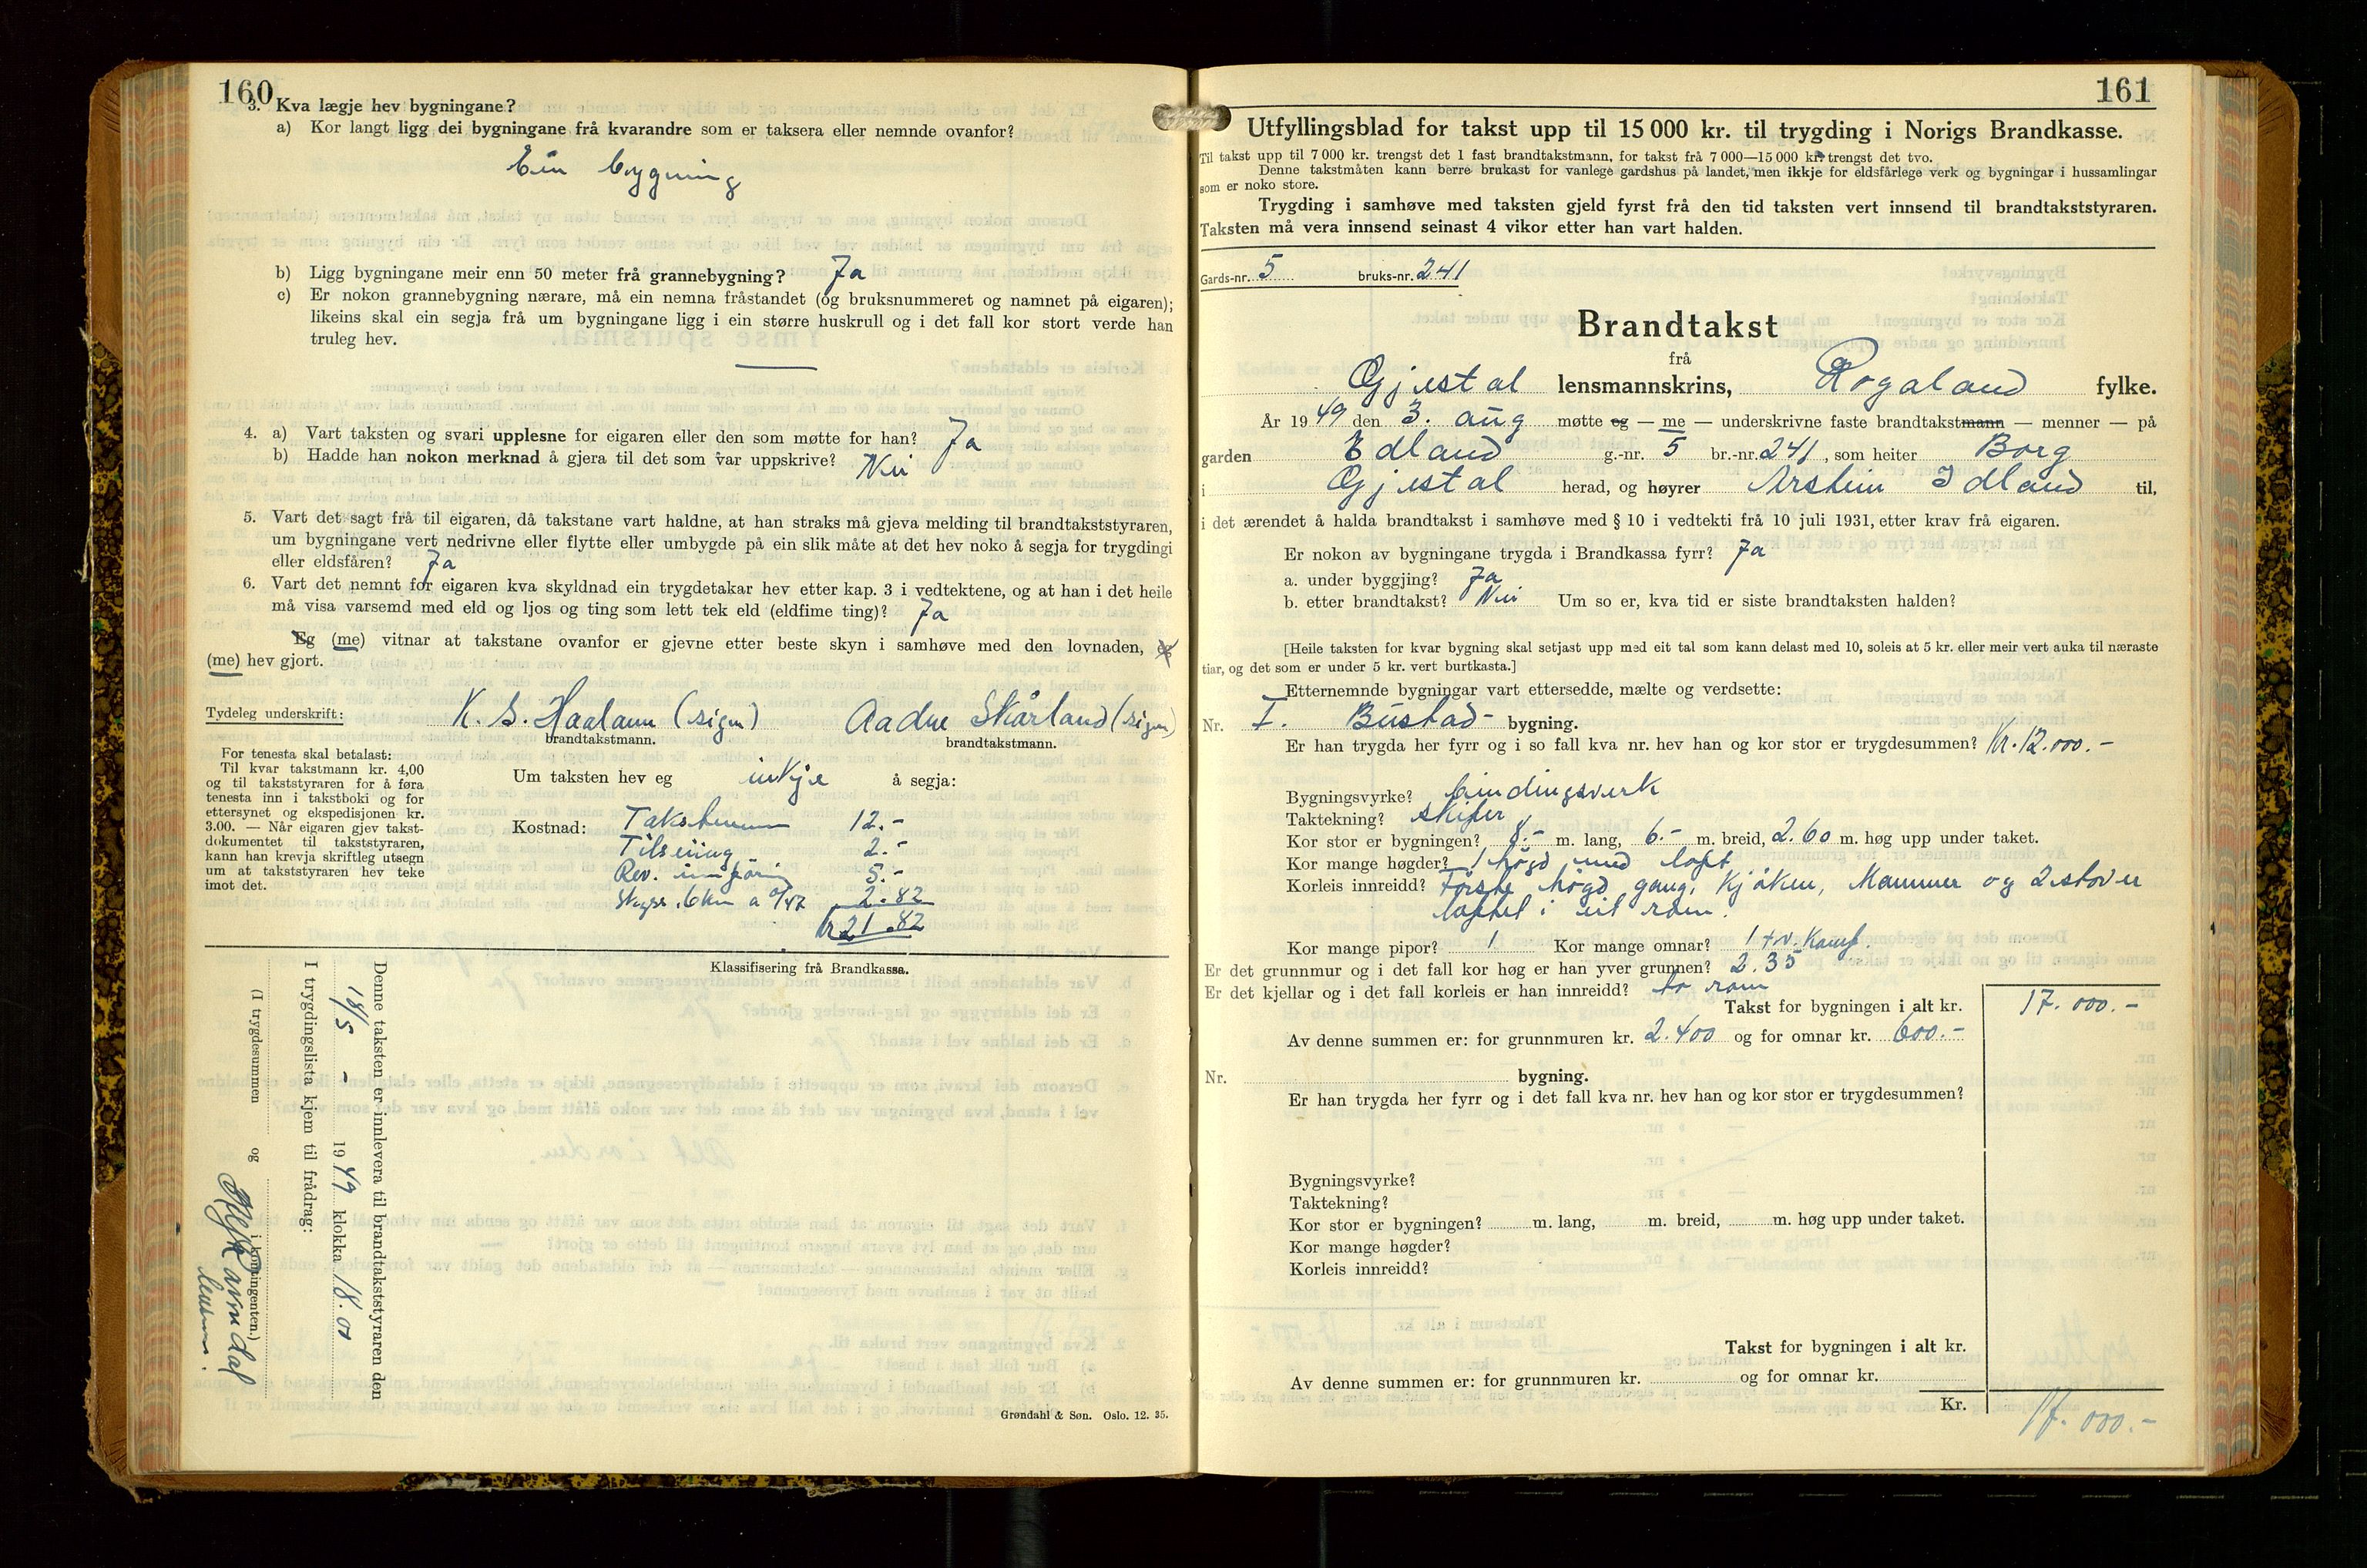 160
3. Kva lægje hev bygningane?
a) Kor langt ligg dei bygningane frå kvarandre som er taksera eller nemnde ovanfor?
Ein bygning
b) Ligg bygningane meir enn 50 meter frå grannebygning? Ja
c) Er nokon grannebygning nærare, må ein nemna fråstandet (og bruksnummeret og namnet på eigaren);
likeins skal ein segja frå um bygningane ligg i ein større huskrull og i det fall kor stort verde han
truleg hev.
4. a) Vart taksten og svari upplesne for eigaren eller den som møtte for han? Ja
b) Hadde han nokon merknad å gjera til det som var uppskrive? Nei
5. Vart det sagt frå til eigaren, då takstane vart haldne, at han straks må gjeva melding til brandtakststyraren,
um bygningane vert nedrivne eller flytte eller umbygde på ein slik måte at det hev noko å segja for trygdingi
eller eldsfåren? Ja
6. Vart det nemnt for eigaren kva skyldnad ein trygdetakar hev etter kap. 3 i vedtektene, og at han i det heile
må visa varsemd med eld og ljos og ting som lett tek eld (eldfime ting)? Ja
Eg (me) vitnar at takstane ovanfor er gjevne etter beste skyn i samhøve med den lovnaden, eg
(me) hev gjort.
Tydeleg underskrift: K. S. Haaland (sign) Aadne Skårland (sign)
brandtakstmann. brandtakstmann.
For tenesta skal betalast:
Til kvar takstmann kr. 4,00
og til takststyraren for å føra
tenesta inn i takstboki og for
ettersynet og ekspedisjonen kr.
3.00. — Når eigaren gjev takst-
dokumentet til takststyraren,
kann han krevja skriftleg utsegn
um at takststyraren hev teke
imot det.
Um taksten hev eg inkje å segja:
Kostnad: Takstmenn 12.-
2.-
Rev. innføring 5.-
Skyss 6 km a 0/47 2.82
kr 21.82
Klassifisering frå Brandkassa.
Denne taksten er innlevera til brandtakststyraren den
18/5 - 1949 klokka 18.00
I trygdingslista kjem til frådrag:
(I trygdesummen og i kontingenten.)
lensm.
Grøndahl & Søn. Oslo. 12. 35.
161
Utfyllingsblad for takst upp til 15 000 kr. til trygding i Norigs Brandkasse.
Til takst upp til 7 000 kr. trengst det 1 fast brandtakstmann, for takst frå 7 000—15 000 kr. trengst det tvo.
Denne takstmåten kann berre brukast for vanlege gardshus på landet, men ikkje for eldsfårlege verk og bygningar i hussamlingar
som er noko store.
Trygding i samhøve med taksten gjeld fyrst frå den tid taksten vert innsend til brandtakststyraren.
Taksten må vera innsend seinast 4 vikor etter han vart halden.
Gards-nr. 5 bruks-nr. 241
Brandtakst
frå
Gjestal lensmannskrins, Rogaland fylke.
År 1949 den 3. aug møtte eg — me — underskrivne faste brandtakstmann — menner — på
garden Edland g.-nr. 5 br.-nr. 241, som heiter Borg
i Gjestal herad, og høyrer Arstein Idland til,
i det ærendet å halda brandtakst i samhøve med § 10 i vedtekti frå 10 juli 1931, etter krav frå eigaren.
Er nokon av bygningane trygda i Brandkassa fyrr? Ja
a. under byggjing? Ja
b. etter brandtakst? Nei Um so er, kva tid er siste brandtaksten halden?
[Heile taksten for kvar bygning skal setjast upp med eit tal som kann delast med 10, soleis at 5 kr. eller meir vert auka til næraste
tiar, og det som er under 5 kr. vert burtkasta.]
Etternemnde bygningar vart ettersedde, mælte og verdsette:
Nr. I. Bustad- bygning.
Er han trygda her fyrr og i so fall kva nr. hev han og kor stor er trygdesummen? Kr. 12.000.-
Bygningsvyrke? bindingsverk
Taktekning? skifer
Kor stor er bygningen? 8.- m. lang, 6.- m. breid, 2.60 m. høg upp under taket.
Kor mange høgder? 1 høgd med loft
Korleis innreidd? Første høgd gang, kjøken, kammer og 2 stover
loftet i eit rom.
Kor mange pipor? 1 Kor mange omnar? 1 + v. Komf.
Er det grunnmur og i det fall kor høg er han yver grunnen? 2.35
Er det kjellar og i det fall korleis er han innreidd? to rom
Takst for bygningen i alt kr. 17.000.-
Av denne summen er: for grunnmuren kr. 2.400 og for omnar kr. 600.-
Nr. bygning.
Er han trygda her fyrr og i det fall kva nr. hev han og kor stor er trygdesummen?
Bygningsvyrke?
Taktekning?
Kor stor er bygningen? m. lang, m. breid, m. høg upp under taket.
Kor mange høgder?
Korleis innreidd?
Takst for bygningen i alt kr.
Av denne summen er: for grunnmuren kr. og for omnar kr.
Kr. 17.000.-